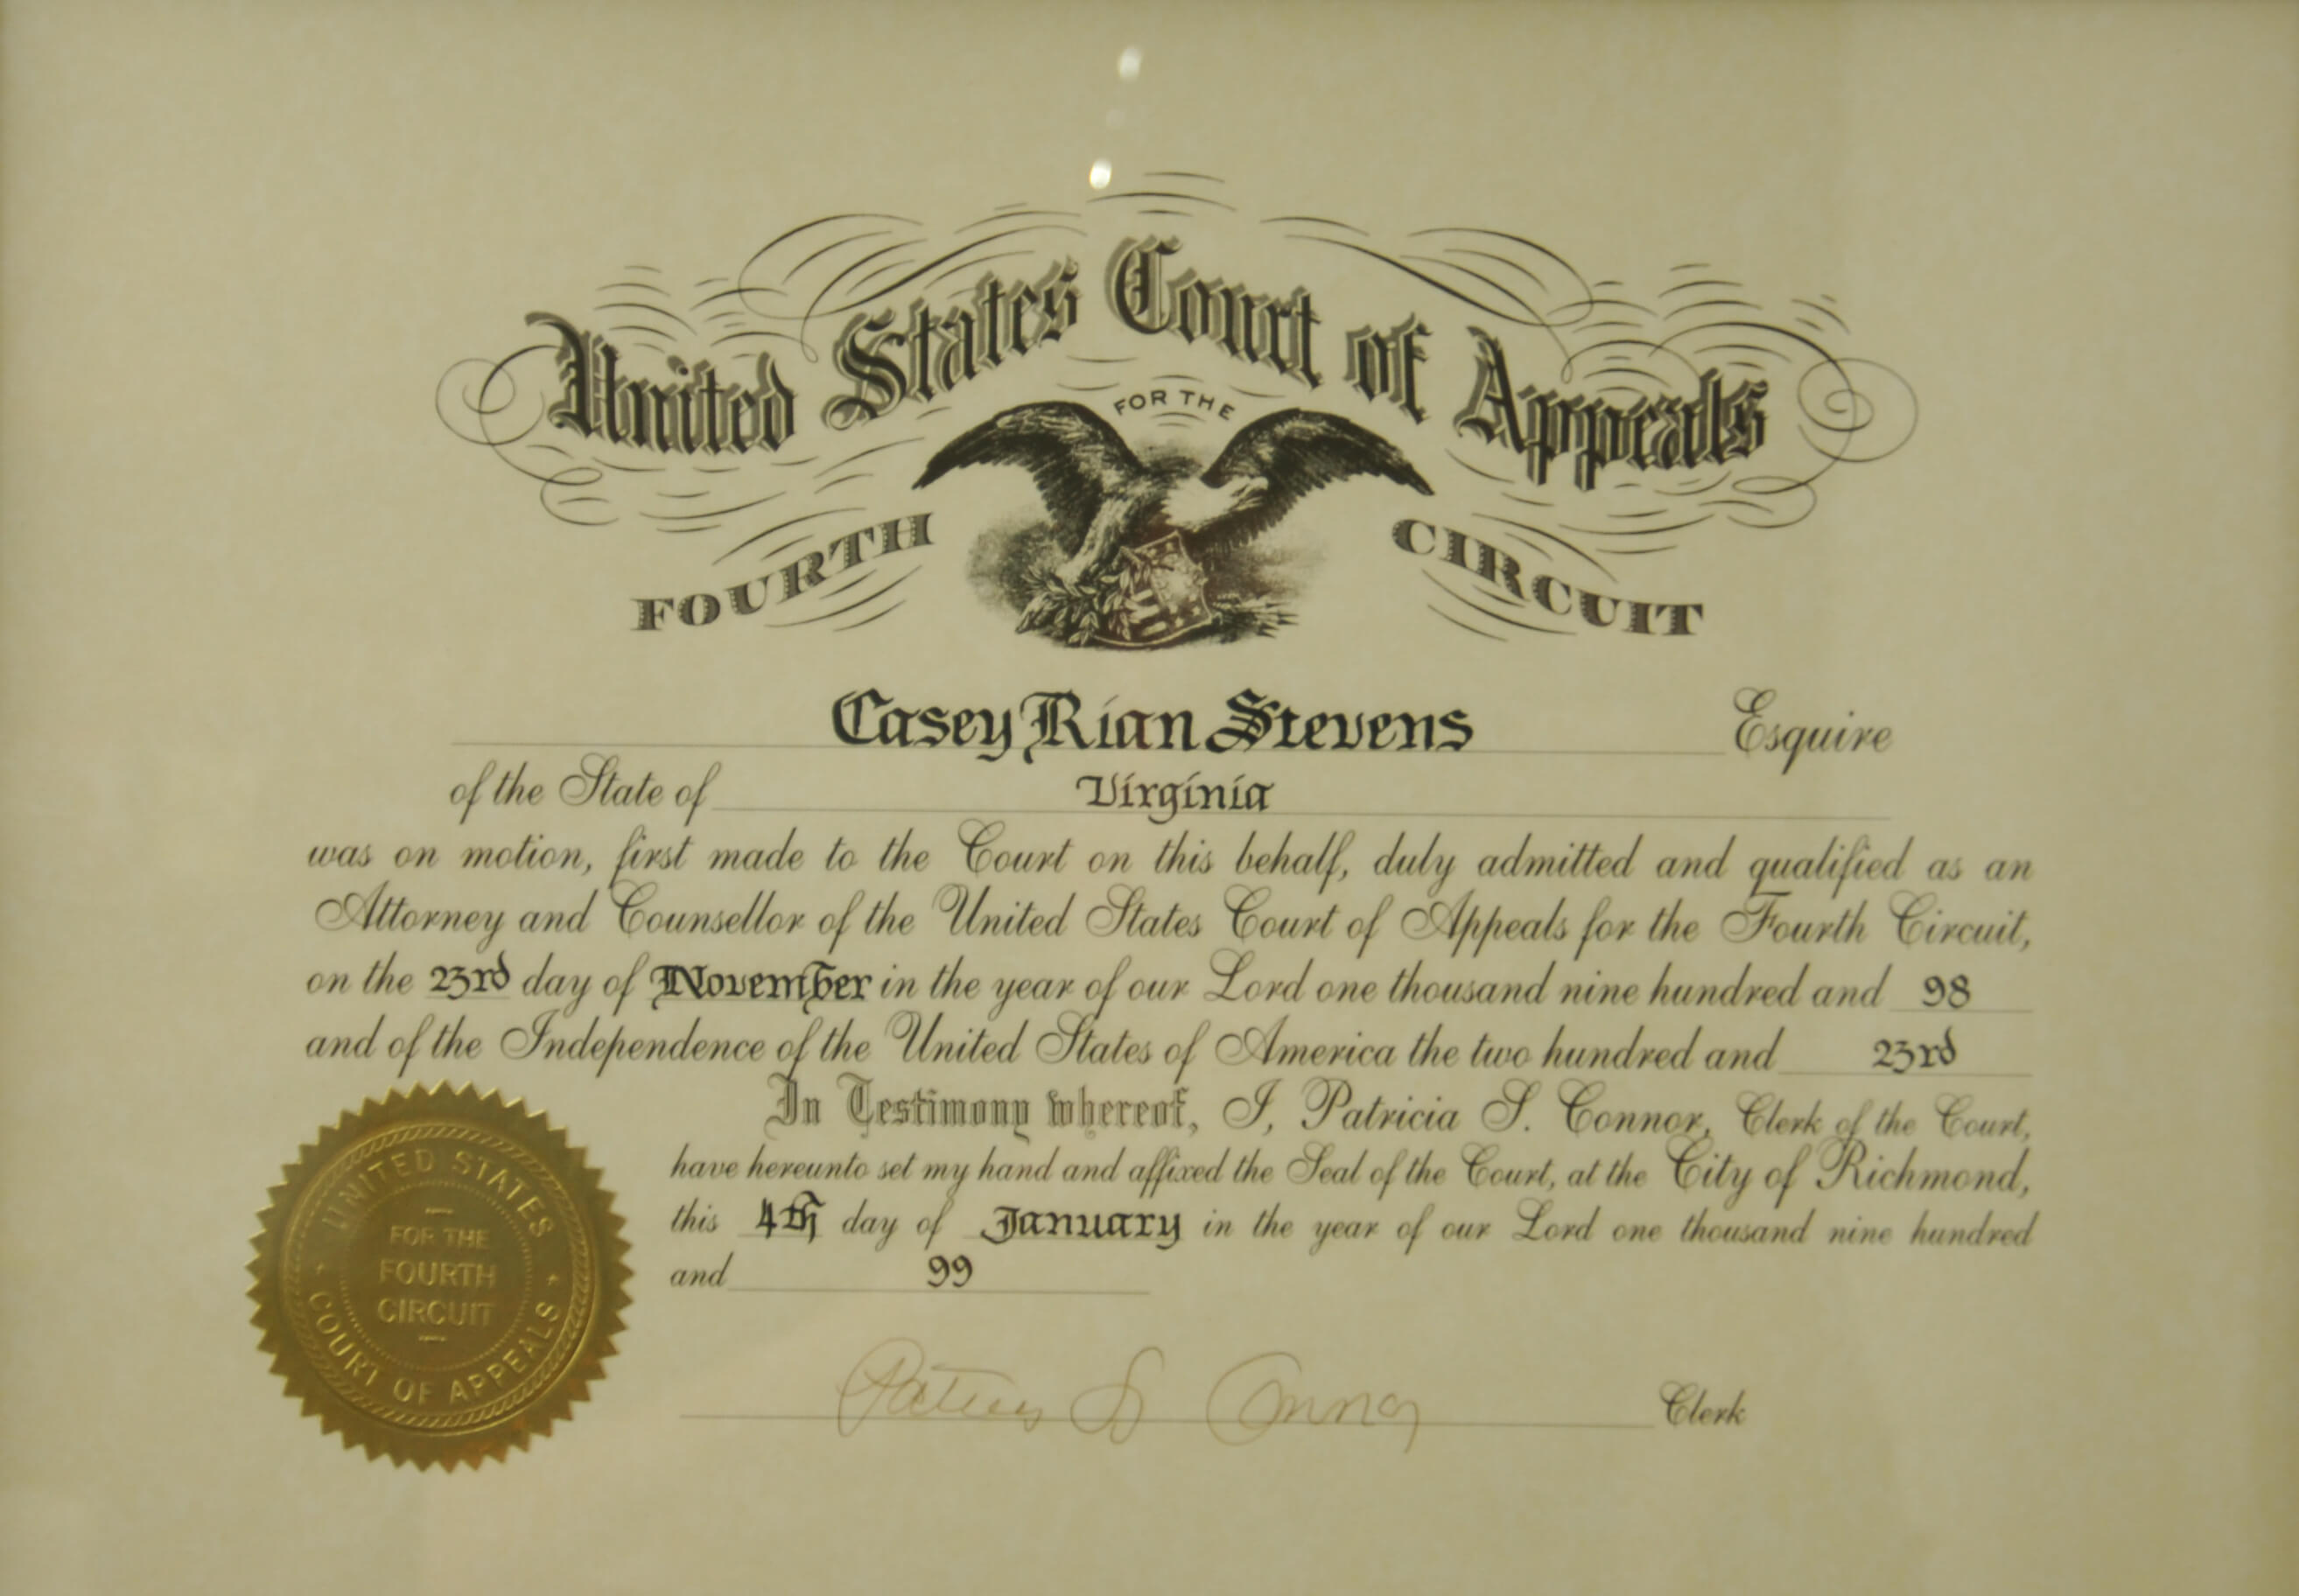 United States Court of Appeals
FOR THE
FOURTH CIRCUIT
Casey Rian Stevens Esquire
of the State of Virginia
was on motion, first made to the Court on this behalf, duly admitted and qualified as an
Attorney and Counsellor of the United States Court of Appeals for the Fourth Circuit,
on the 23rd day of November in the year of our Lord one thousand nine hundred and 98
and of the Independence of the United States of America the two hundred and 23rd
In Testimony whereof, I, Patricia S. Connor, Clerk of the Court,
have hereunto set my hand and affixed the Seal of the Court, at the City of Richmond,
this 4th day of January in the year of our Lord one thousand nine hundred
and 99
Patricia S Connor Clerk
UNITED STATES
FOR THE
FOURTH
CIRCUIT
COURT OF APPEALS